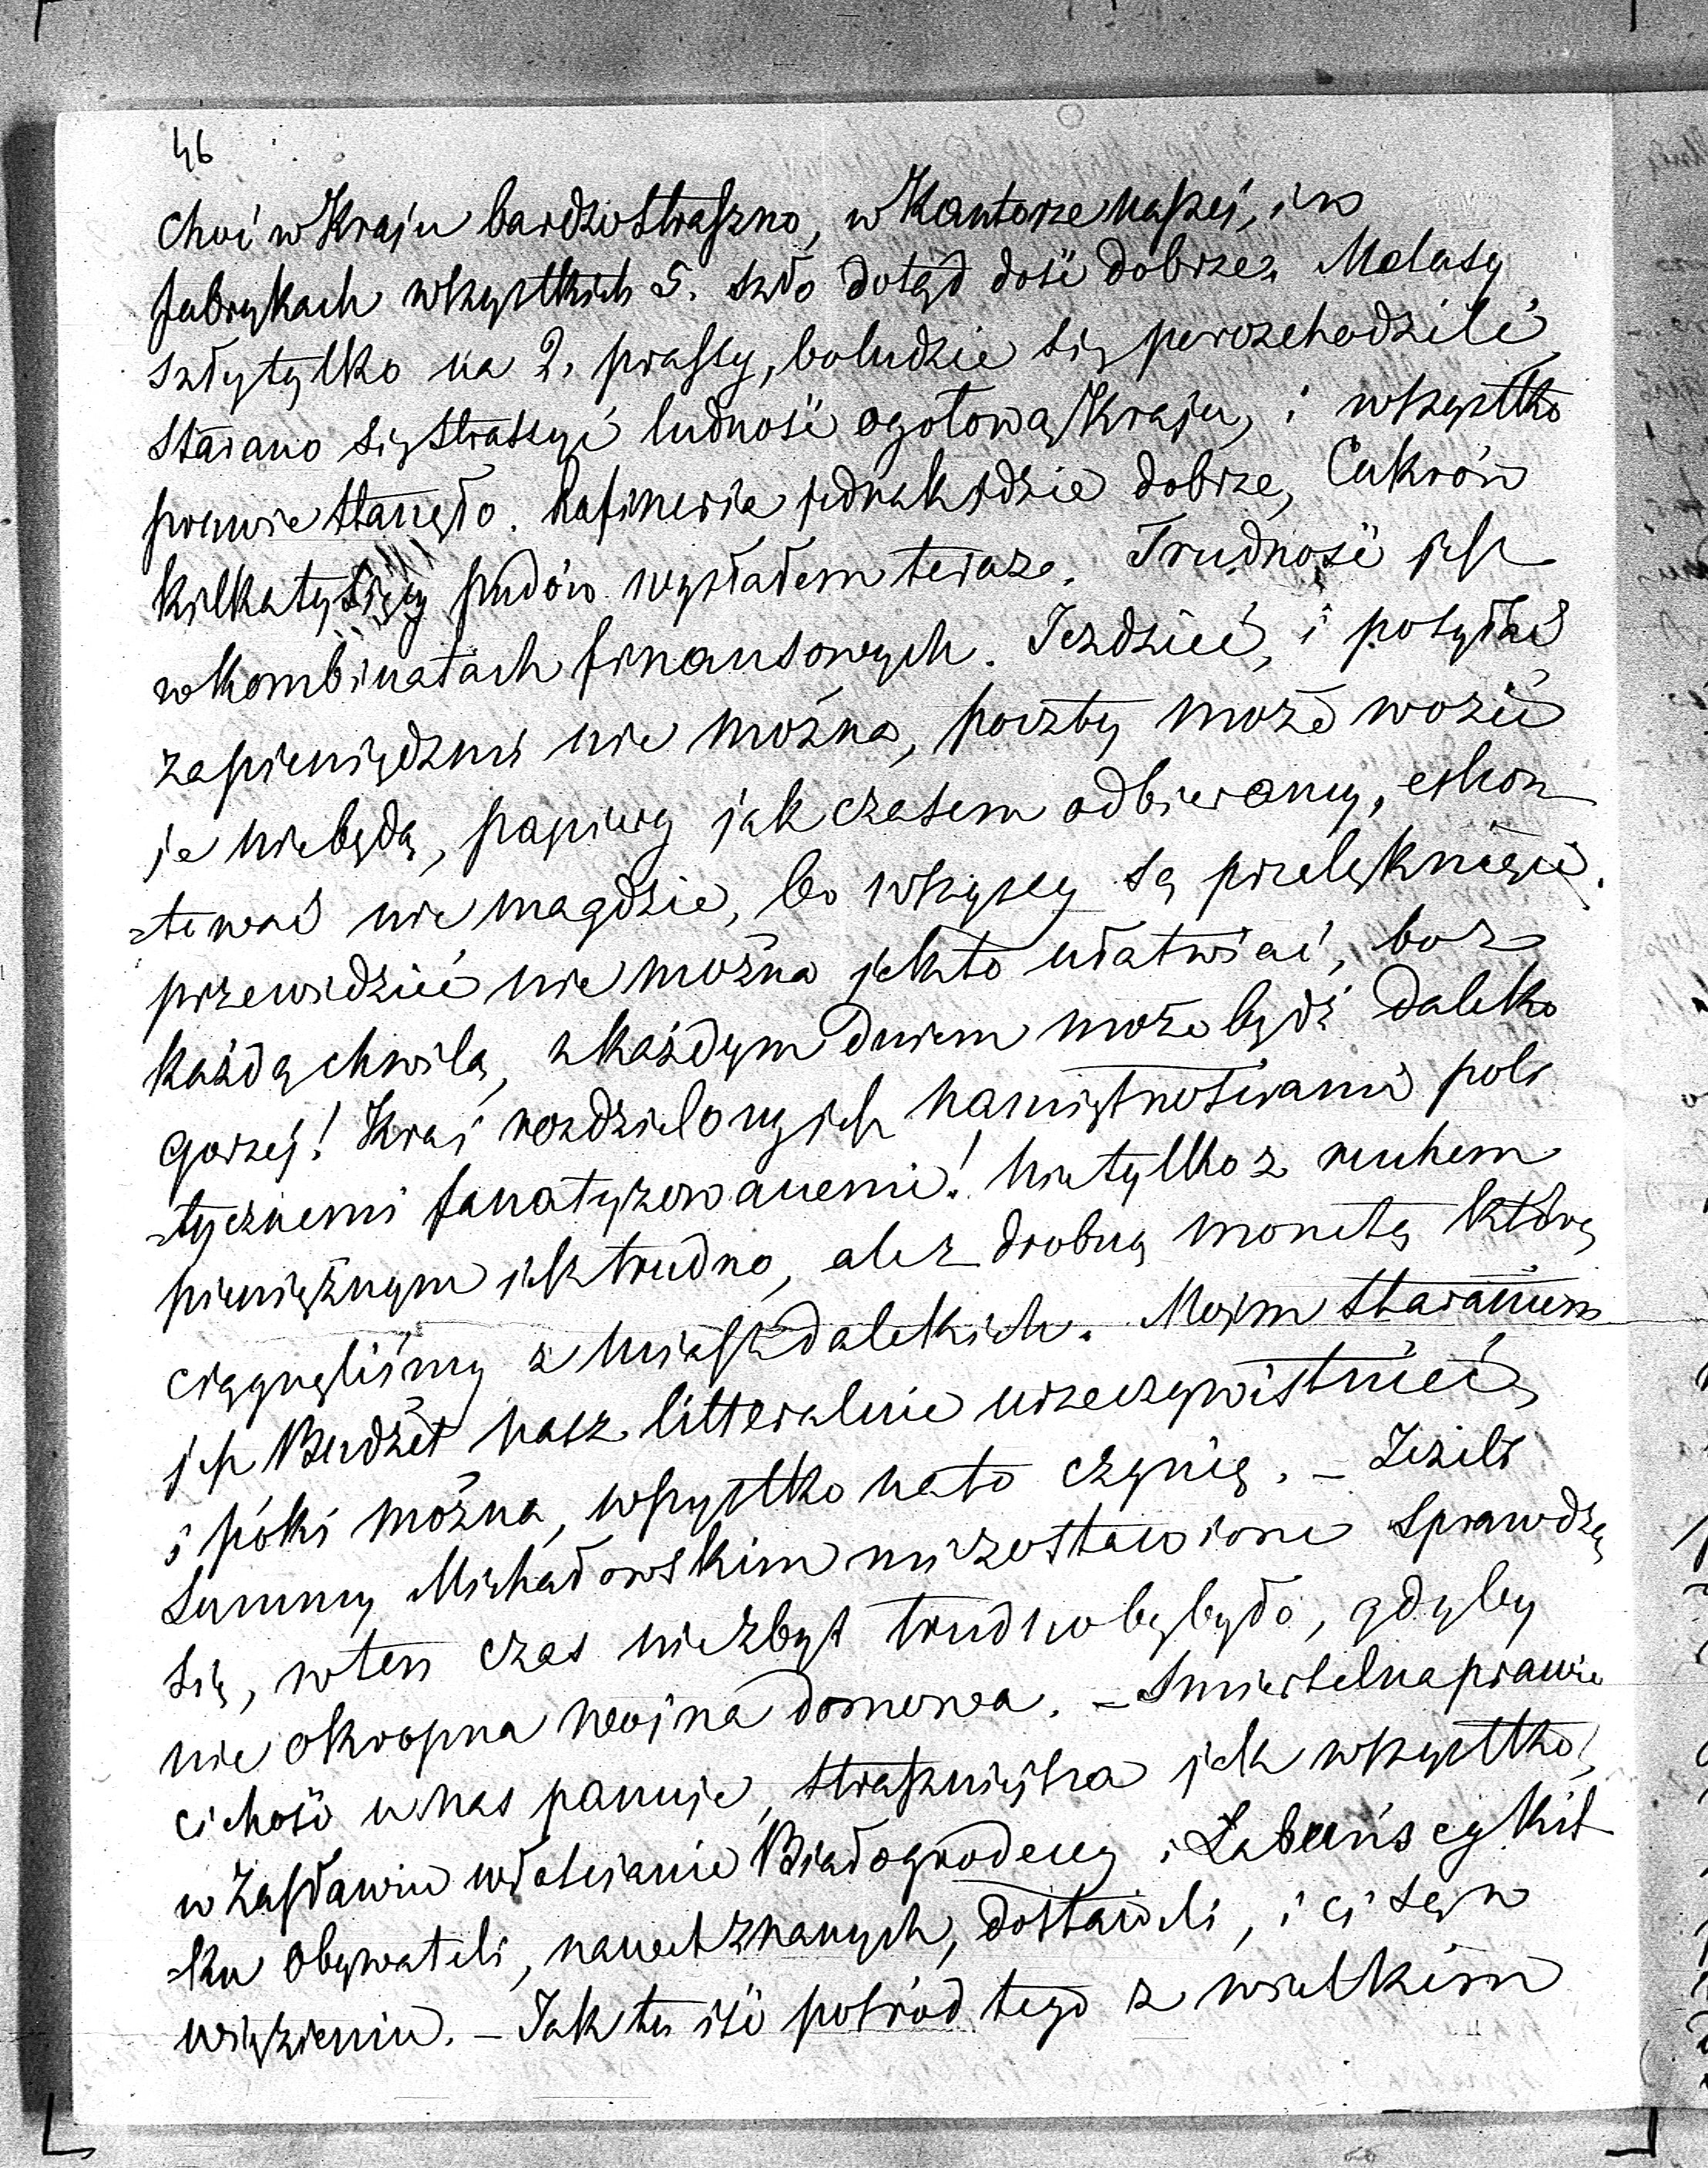 46
choć w Kraju bardzo straszno, w Kantorze naszej, i w
fabrykach wszystkich 5. szło dotąd dość dobrze. Melasy
szły tylko na 2. prassy, bo ludzie się porozchodzili
starano się straszyć ludność ogołową Kraju, i wszystko
prawie stanęło. Rafineria jednak idzie dobrze, Cukrów
kilka tysięcy pudów wysłałem teraz. Trudność jest
w kombinatach finansowych. Jezdzieć, i posyłać
za pieniędzmi nie można, poczty może wozić
je niebędą, papiery jak czasem odbieramy, eskon
=tować nie ma gdzie, bo wszyscy są przelęknięci.
przewidzieć nie można jak to ułatwiać, bo z
każdą chwilą, z każdym dniem może bydź daleko
gorzej! Kraj rozdzielony jest namiętnościami poli
=tycznemi fanatyzowanemi! Nie tylko z ruchem
pieniężnym jest trudno, ale z drobną monetą którą
ciągnęliśmy z miast dalekich. Mojm staraniem
jest Budżet nasz litteralnie urzeczywistnieć,
i póki można, wszystko na to czynię. – Jeżeli
Summy Michałowskim mi zostawione sprawdzą
się, w ten czas nie zbyt trudno by było, gdyby
nie okropna wojna domowa. – Smiertelna prawie
cichość u nas panuje, straszniejsza jak wszystko,
w Zasławiu włościanie Białogrodeccy i Łabuńscy kil
=ku Obywateli, nawet znanych, dostawili, i ci są w
więzieniu. – Jak tu iść pośród tego z wielkim